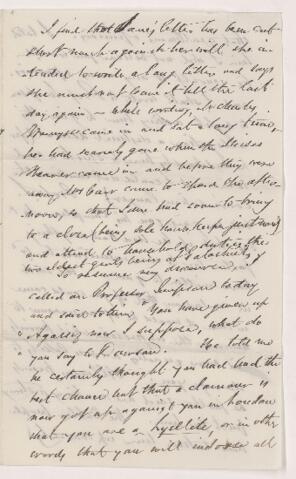 I find that Jane's letter has been cut
short much against her will she in-
tended to write a long letter and says
she must not leave it till the last
day again — While writing, Mr Charles
came in and sat a long time,
he had scarcely gone when the Misses
came in and before they were
away Mr Carr came to spend the after-
noon, so that Jane had soon to bring
to a close (being sole housekeeper just now)
and attend to household duties the
two eldest girls being at
To resume my discourse, I
called on Professor Simpson today
and said to him "You have given up
Agassiz now I suppose, what do
you say to ". He told me
he certainly thought you had had the
best chance but that a clamour is
now got up against you in London
that you are a Lyellite, or in other
words that you will indorse all